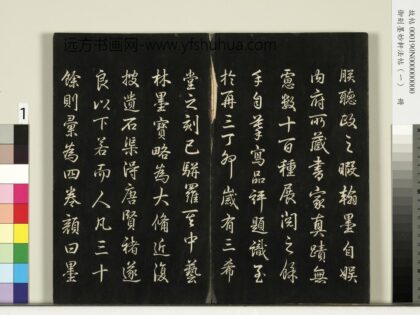 远方书画网-www.yfshuhua.com
故帖 000190N000000000
御刻墨妙軒法帖（一） 冊
朕聽政之暇翰墨自娛
內府所藏書家真蹟無
慮數十百種展閱之餘
手自摹寫品評題識至
於再三丁卯歲有三希
堂之刻已駢羅其中藝
林墨寶略為大備近復
搜遺石渠得唐賢褚遂
良以下若而人凡三十
餘則彙為四卷顏曰墨
1